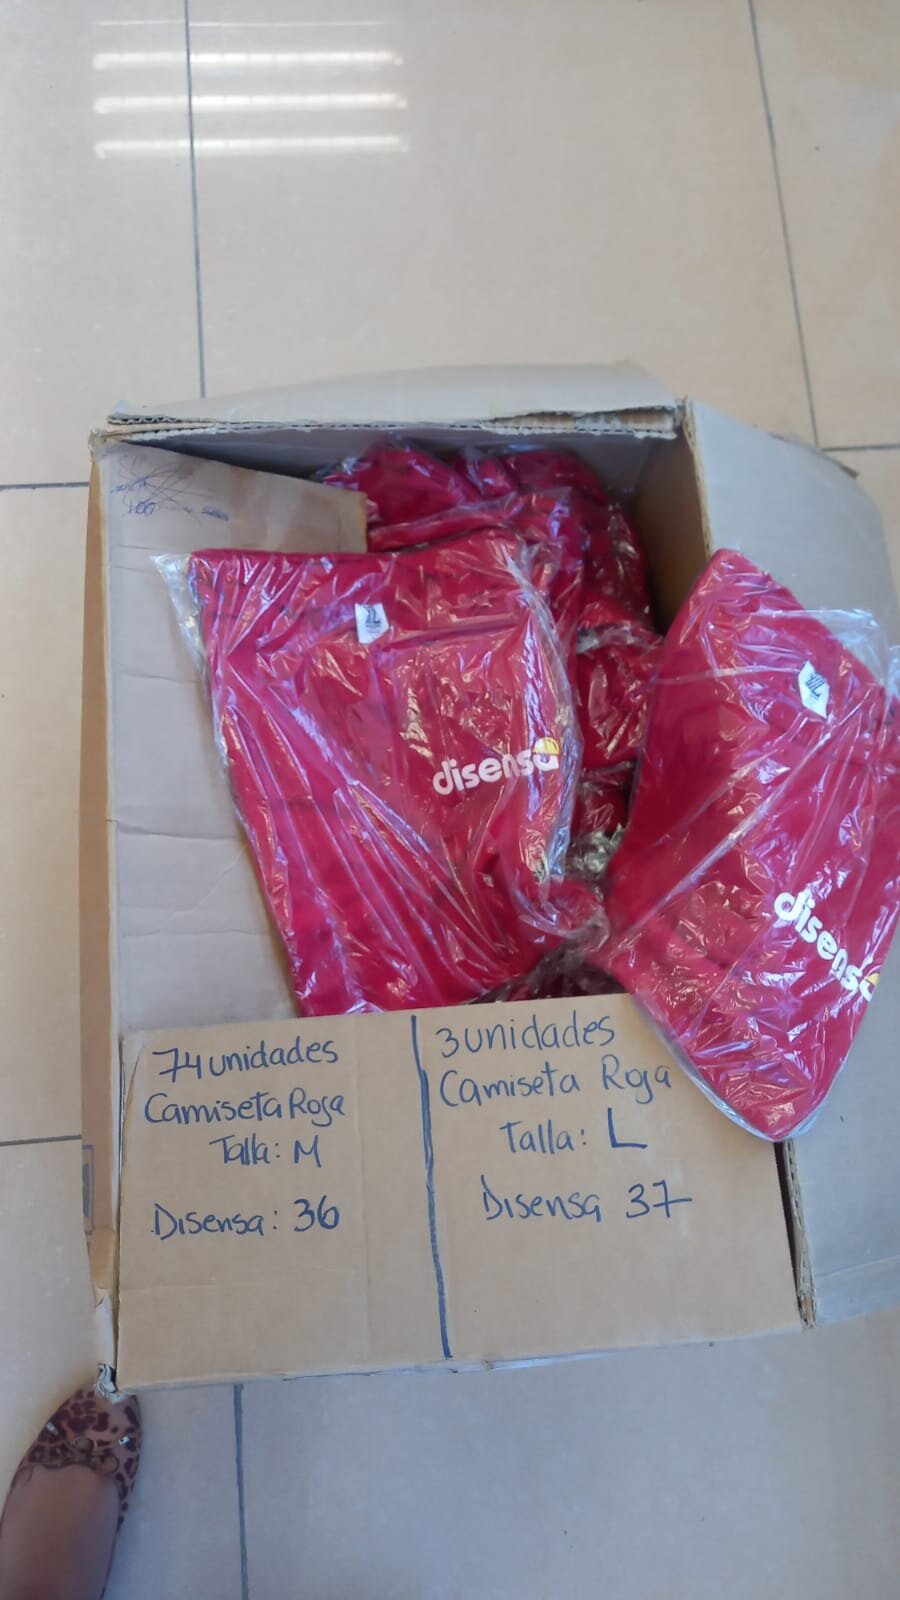 100
disensa
disensa
74 unidades
Camiseta Roja
Talla: M
Disensa: 36
3 unidades
Camiseta Roja
Talla: L
Disensa 37